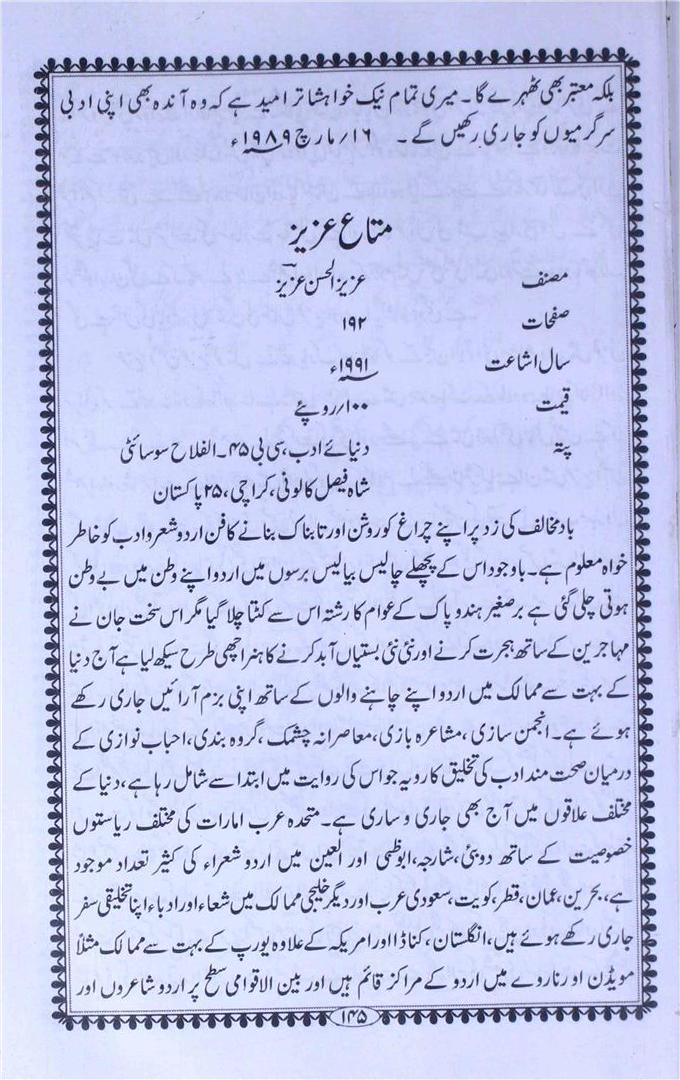 بلکہ معتبر بھی ٹھہرے گا۔ میری تمام نیک خواہشات امید ہے کہ وہ آئندہ بھی اپنی ادبی
سرگرمیوں کو جاری رکھیں گے۔ ۱۶؍مارچ ۱۹۸۹ء
متاع عزیز
مصنف عزیز الحسن عزیز
صفحات ۱۹۲
سال اشاعت ۱۹۹۱ء
قیمت ۱۰۰؍روپئے
پتہ دنیائے ادب، سی بی ۴۵۔ الفلاح سوسائٹی
شاہ فیصل کالونی، کراچی، ۲۵ پاکستان
باد مخالف کی زد پر اپنے چراغ کو روشن اور تابناک بنانے کا فن اردو شعر و ادب کو خاطر
خواہ معلوم ہے۔ باوجود اس کے پچھلے چالیس بیالیس برسوں میں اردو اپنے وطن میں بے وطن
ہوتی چلی گئی ہے برصغیر ہندوپاک کے عوام کا رشتہ اس سے کٹتا چلا گیا مگر اس سخت جان نے
مہاجرین کے ساتھ ہجرت کرنے اور نئی نئی بستیاں آباد کرنے کا ہنر اچھی طرح سیکھ لیا ہے آج دنیا
کے بہت سے ممالک میں اردو اپنے چاہنے والوں کے ساتھ اپنی بزم آرائیں جاری رکھے
ہوئے ہے۔ انجمن سازی، مشاعرہ بازی، معاصرانہ چشمک، گروہ بندی، احباب نوازی کے
درمیان صحت مند ادب کی تخلیق کا رویہ جو اس کی روایت میں ابتدا سے شامل رہا ہے، دنیا کے
مختلف علاقوں میں آج بھی جاری و ساری ہے۔ متحدہ عرب امارات کی مختلف ریاستوں
خصوصیت کے ساتھ دوبئی، شارجہ، ابوظہبی اور العین میں اردو شعراء کی کثیر تعداد موجود
ہے، بحرین، عمان، قطر، کویت، سعودی عرب اور دیگر خلیجی ممالک میں شعاء اور ادباء اپنا تخلیقی سفر
جاری رکھے ہوئے ہیں، انگلستان، کناڈا اور امریکہ کے علاوہ یورپ کے بہت سے ممالک مثلاً
مویڈن اور ناروے میں اردو کے مراکز قائم ہیں اور بین الاقوامی سطح پر اردو شاعروں اور
۱۴۵